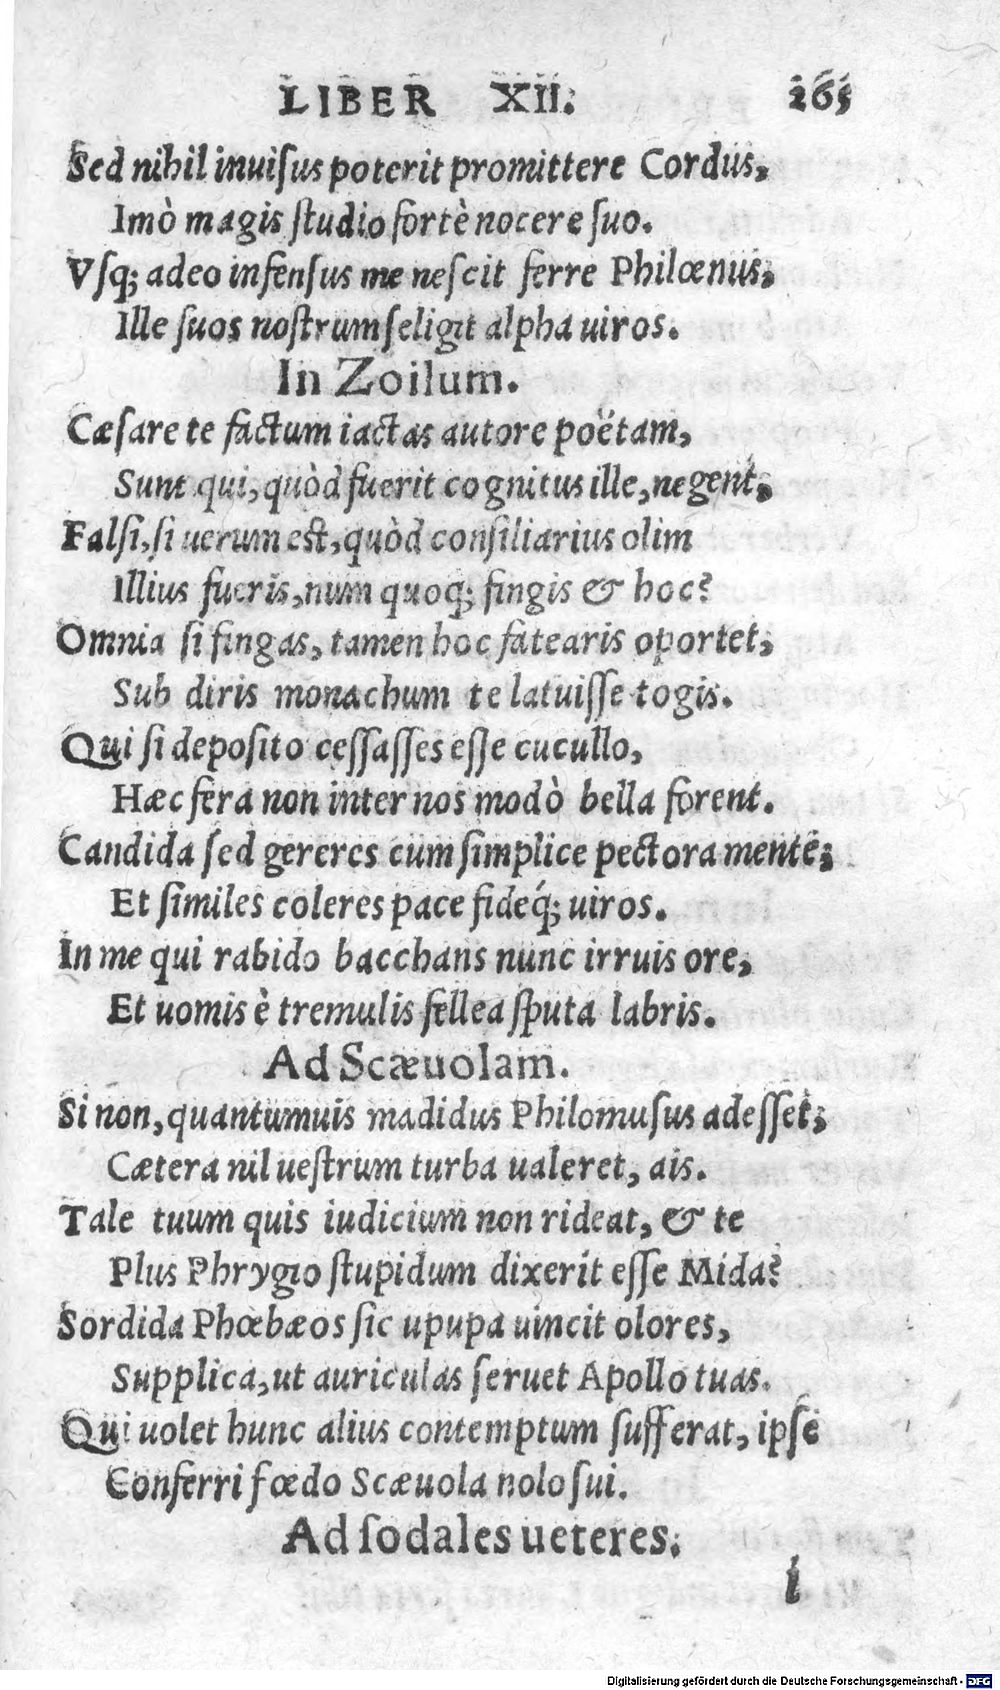 LIBER XII. 265
Sed nihil inuiſus poterit promittere Cordus,
Imò magis ſtudio fortè nocere ſuo.
Vſq; adeo infenſus me neſcit ferre Philœnus,
Ille ſuos noſtrum ſeligit alpha uiros.
In Zoilum.
Cæſare te factum iactas autore poëtam,
Sunt qui, quòd fuerit cognitus ille, negent,
Falſi, ſi uerum eſt, quòd conſiliarius olim
Illius fueris, num quoq; fingis & hoc?
Omnia ſi fingas, tamen hoc fatearis oportet,
Sub diris monachum te latuiſſe togis.
Qui ſi depoſito ceſſaſſes eſſe cucullo,
Hæc fera non inter nos modò bella forent.
Candida ſed gereres cum ſimplice pectora mente,
Et ſimiles coleres pace fideq́; uiros.
In me qui rabido bacchans nunc irruis ore,
Et uomis è tremulis fellea ſputa labris.
Ad Scæuolam.
Si non, quantumuis madidus Philomuſus adeſſet,
Cætera nil ueſtrum turba ualeret, ais.
Tale tuum quis iudicium non rideat, & te
Plus Phrygio ſtupidum dixerit eſſe Mida?
Sordida Phœbæos ſic upupa uincit olores,
Supplica, ut auriculas ſeruet Apollo tuas.
Qui uolet hunc alius contemptum ſufferat, ipſe
Conferri fœdo Scæuola nolo ſui.
Ad ſodales ueteres.
l
Digitalisierung gefördert durch die Deutsche Forschungsgemeinschaft - DFG